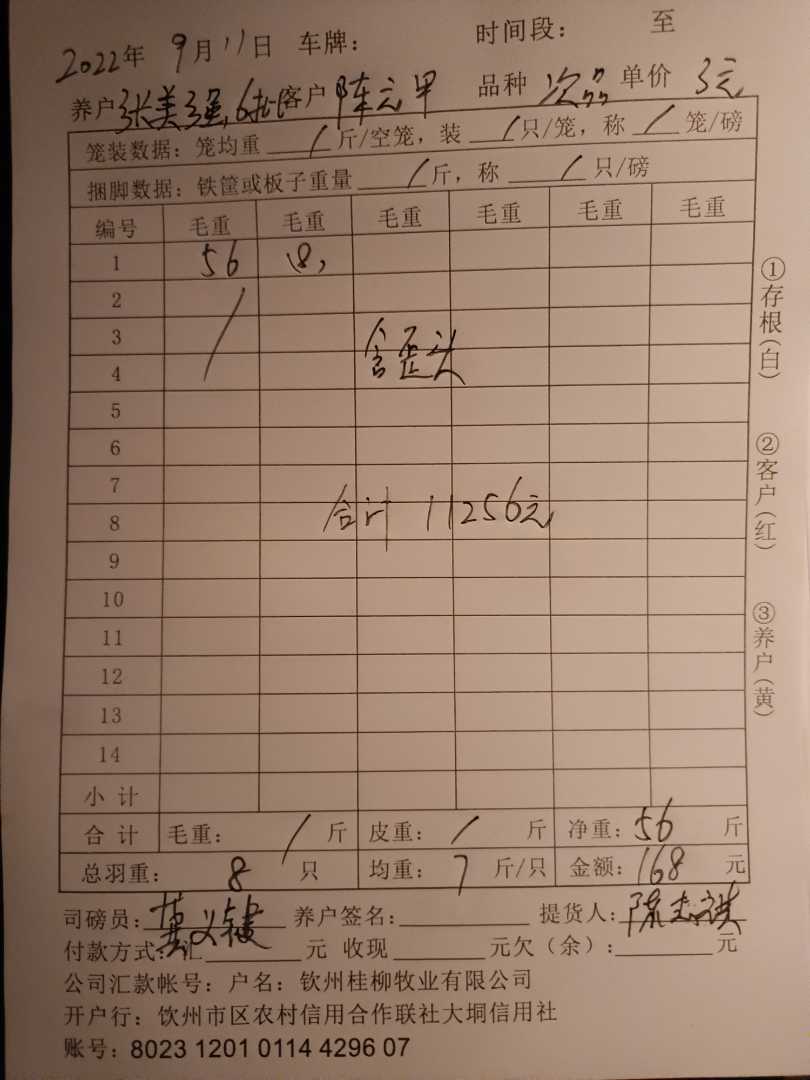 2022年 9月11日 车牌： 时间段： 至
养户 张美强,6批 客户 陈元甲 品种 次品 单价 3元
笼装数据：笼均重 / 斤/空笼，装 / 只/笼，称 / 笼/磅
捆脚数据：铁筐或板子重量 / 斤，称 / 只/磅
编号 毛重 毛重 毛重 毛重 毛重 毛重
1 56 (8)
2
3
4
含歪头
5
6
7
8
合计 11256元
9
10
11
12
13
14
小计
合计 毛重： / 斤 皮重： / 斤 净重：56 斤
总羽重： 8 只 均重： 7 斤/只 金额：168 元
司磅员： 养户签名： 提货人：陈志
付款方式：汇 元 收现 元欠（余）： 元
公司汇款帐号：户名：钦州桂柳牧业有限公司
开户行：钦州市区农村信用合作联社大垌信用社
账号：8023 1201 0114 4296 07
①存根（白）
②客户（红）
③养户（黄）